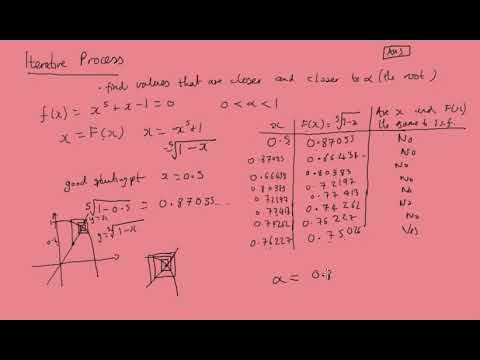 Iterative Process
• find values that are closer and closer to α (the root)
f(x) = x⁵ + x - 1 = 0    0 < α < 1
x = F(x)    x = -x⁵ + 1
⁵√(1 - x)
good starting pt    x = 0.5
⁵√(1 - 0.5) = 0.87055...
y = x
y = ⁵√(1 - x)
x    F(x) = ⁵√(1-x)    Are x and F(x) the same to 1 s.f.
0.5    0.87055    No
0.87055    0.66436..    No
0.66436    0.80383    No
0.80383    0.72197    No
0.72197    0.77413    No
0.77413    0.74262    No
0.74262    0.76227    No
0.76227    0.75026    Yes
α = 0.8